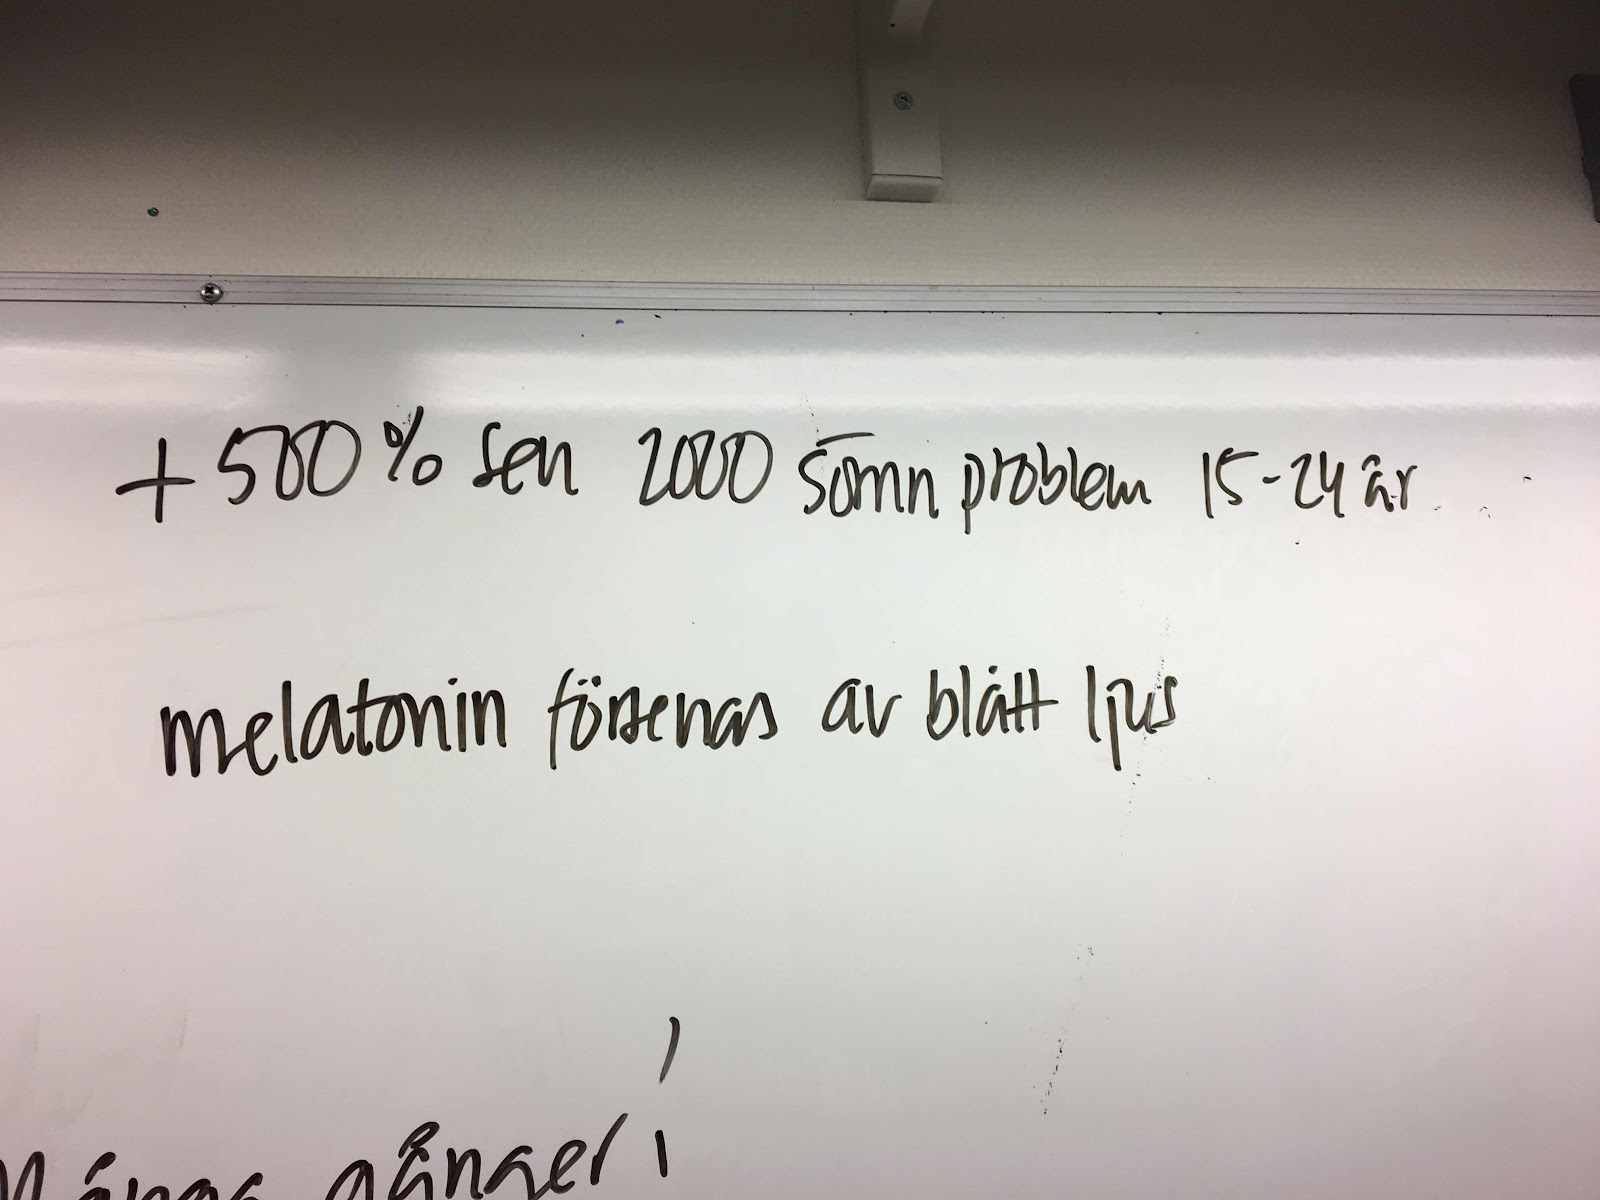 +500% sen 2000 sömn problem 15-24 år
melatonin försenas av blått ljus
Många gånger!